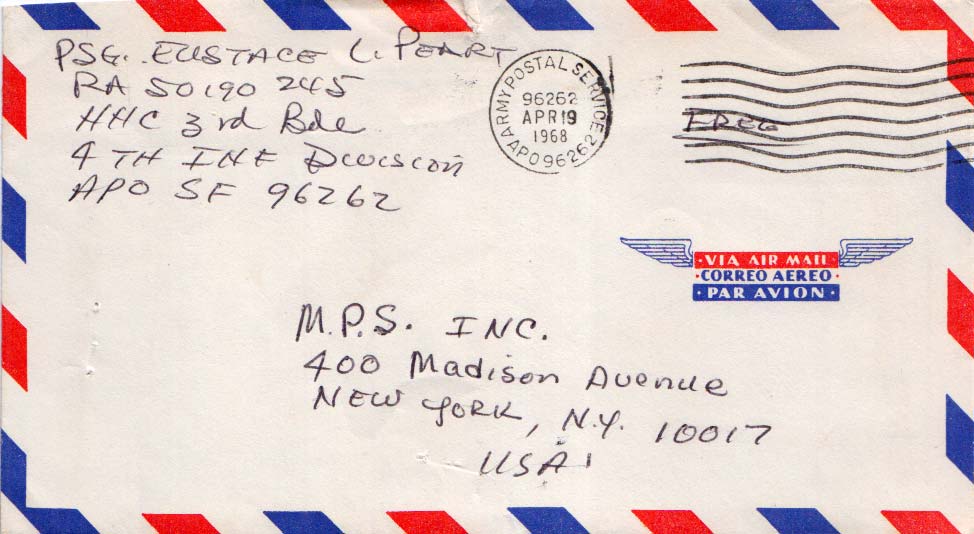 PSG. EUSTACE L. PEART
RA 50190 245
HHC 3rd Bde
4 TH INF Division
APO SF 96262
ARMY POSTAL SERVICE
96262
APR 19
1968
APO 96262
FREE
VIA AIR MAIL
CORREO AEREO
PAR AVION
M.P.S. INC.
400 Madison Avenue
NEW YORK, N.Y. 10017
USA